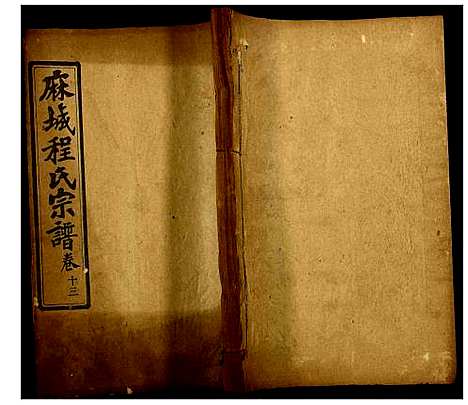 麻城程氏宗譜卷十三